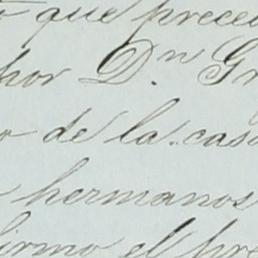 que prece
por Dn Gr
de la casa
hermanos
firmo el pre